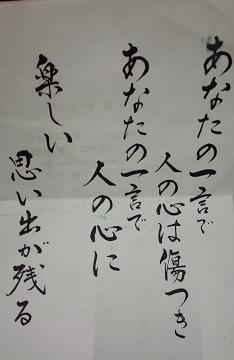 あなたの一言で
人の心は傷つき
あなたの一言で
人の心に
楽しい
思い出が残る